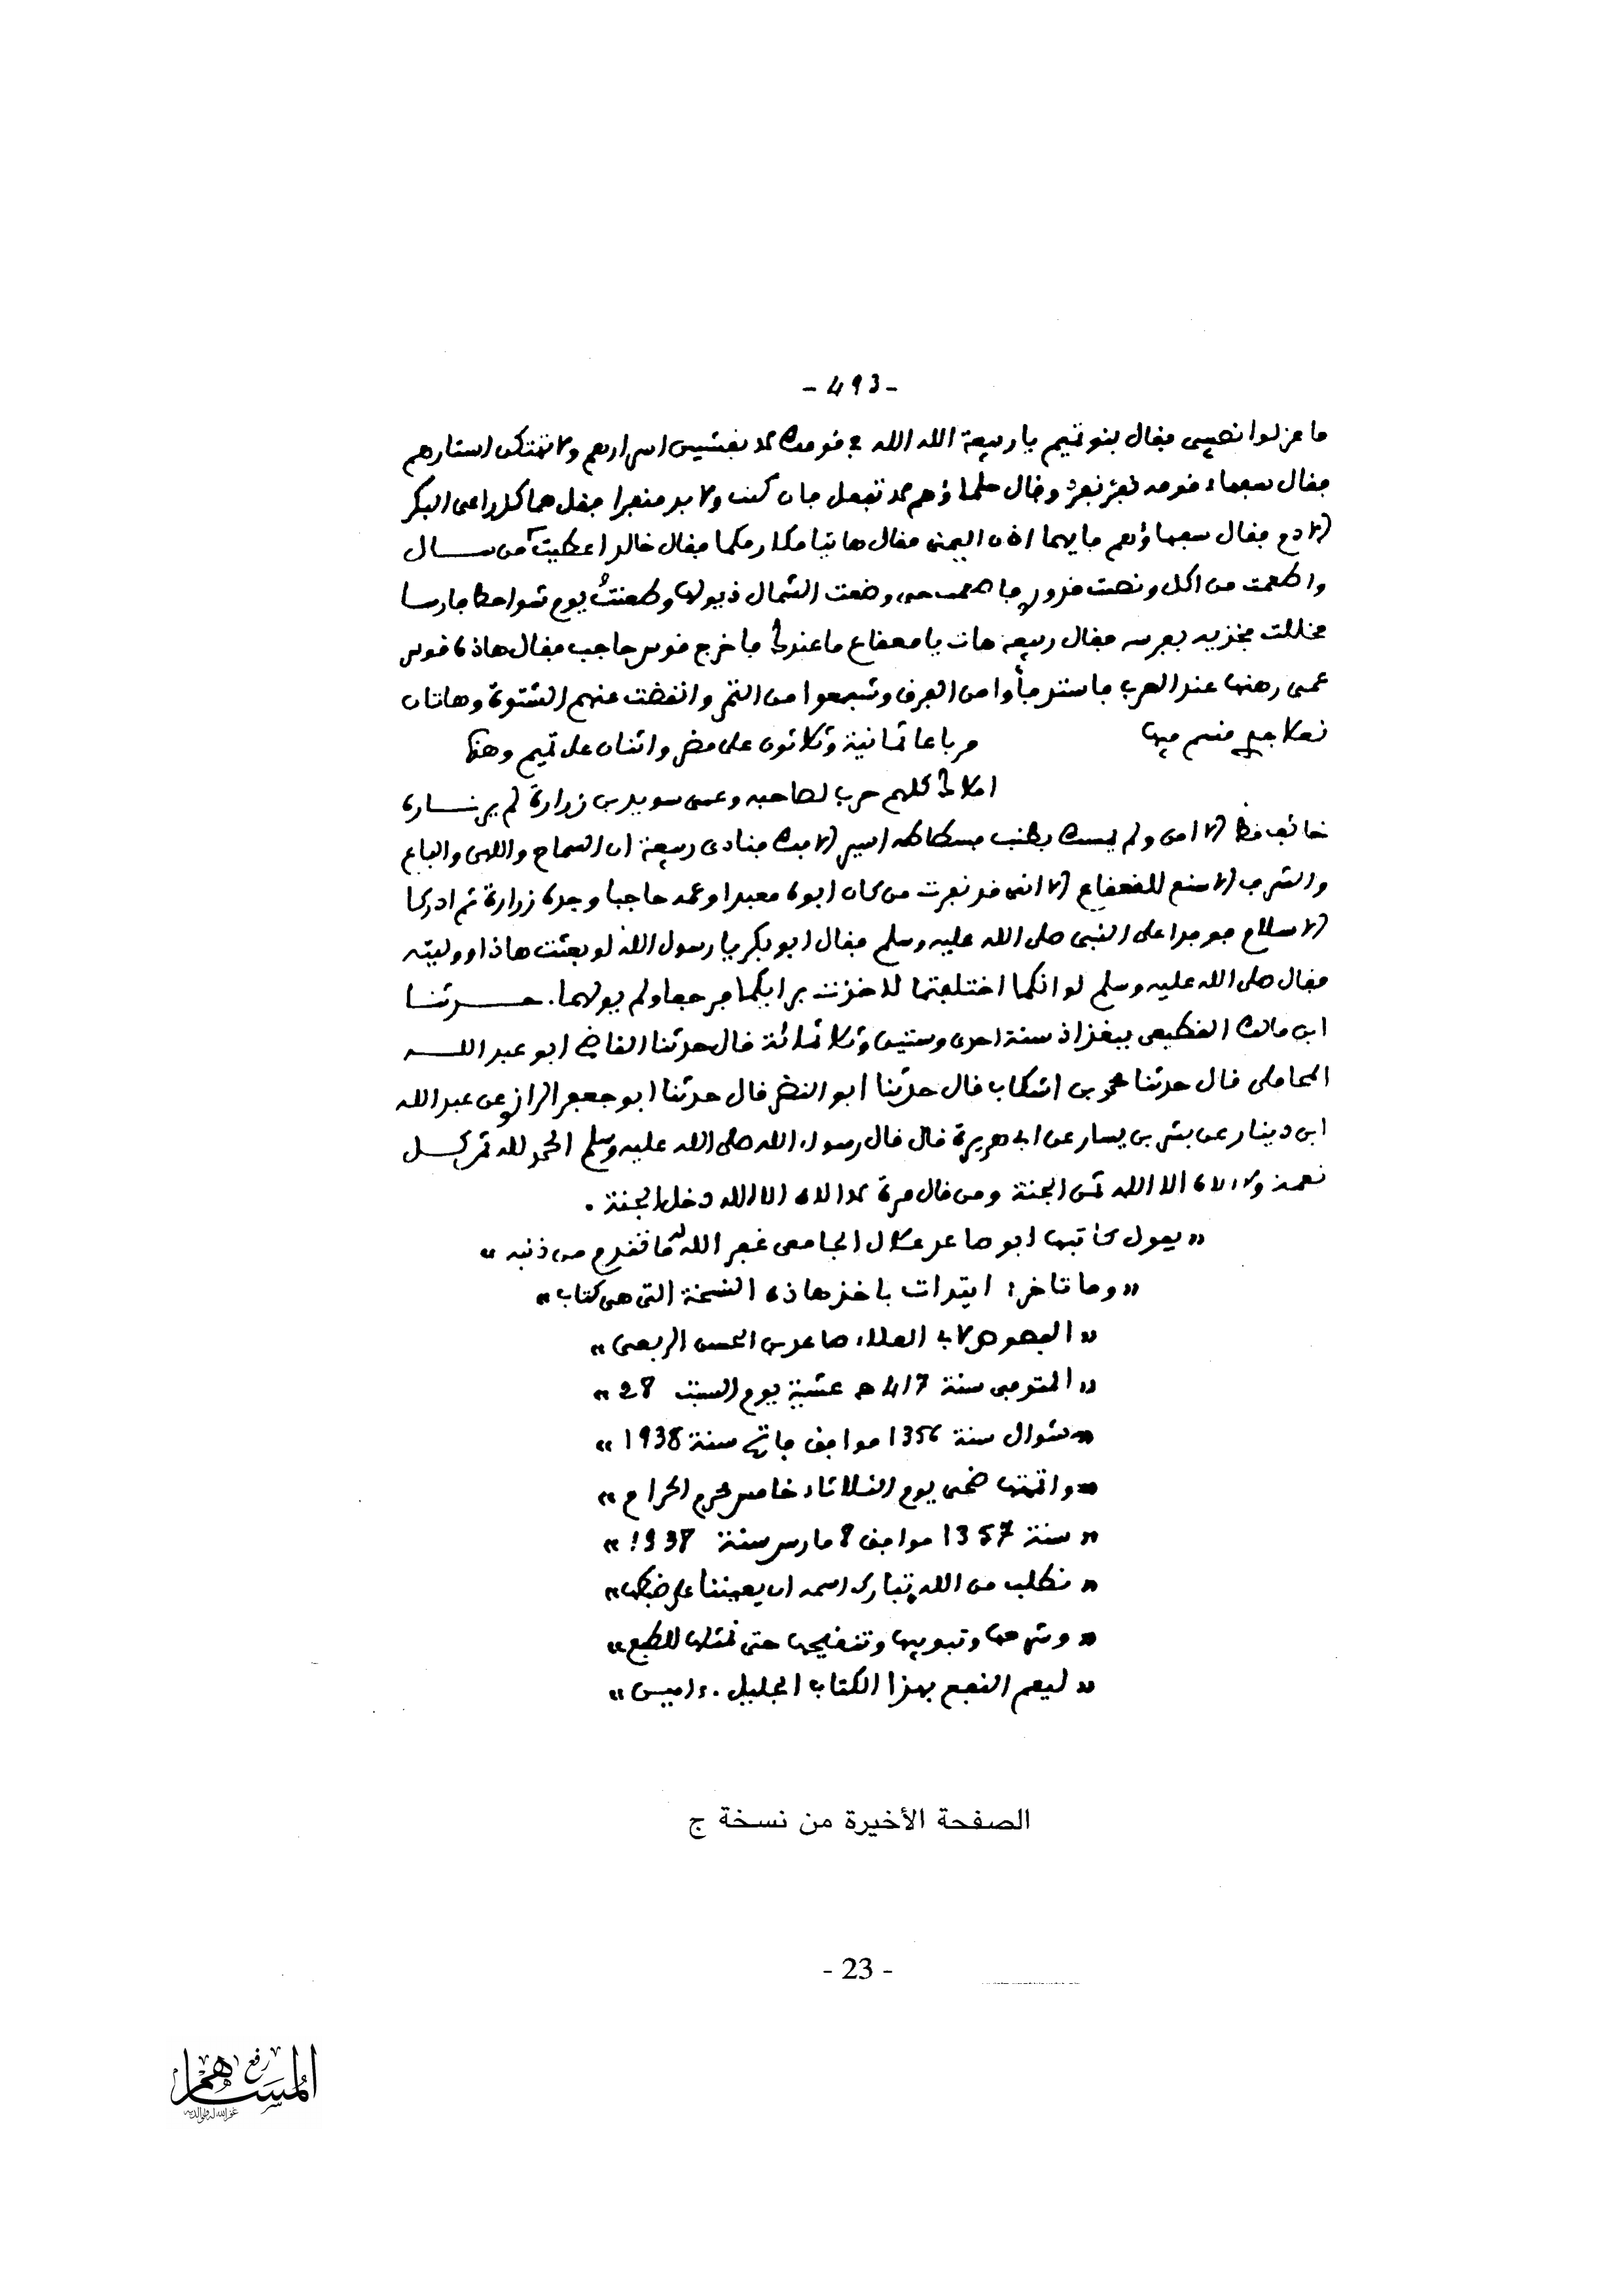 - 493 -
ما عزلوا نصيبي فقال بنو تميم يا ربيعة الله الله في قومك لا تفشين اسرارهم ولا تهتكن استارهم
فقال سفهاء قومه نفر نفر وقال حلماؤهم لا تفعل فان كنت ولا بد منفرا فقل هما كل راعى البكر
الادع فقال سفهاؤهم فايهما اذن اليمنى فقال هاتيا مكارمكما فقال خالد اعطيت من ســال
واطعمت من اكل ونصبت قدوري حين وضعت الشمال ذيولها وطعنت يوم شواحط فارسا
فخللت فخذيه بفرسه فقال ربيعة هات يا قعقاع ما عندك فاخرج قوس حاجب فقال هاذه قوس
عمى رهنها عند العرب وشبعوا من التمر وانفضت عنهم الشتوة وهاتان
نعلا قسم فيها مرباعا ثمانية وثلاثون على مضر واثنان على تميم
كلهم حرب لصاحبه وعمى سويد بن زرارة لم ير نــاره
خائف قط الا امن ولم يمسك بطنب فسطاطه اسير الا فك فنادى ربيعة ان السماح واللهى والباع
والشرف الاسنع للقعقاع الا انى قد نفرت من كان ابوه معبدا وعمه حاجبا وجده زرارة ثم ادركا
الاسلام فوفدا على النبى صلى الله عليه وسلم فقال ابو بكر يا رسول الله لو بعثت هاذا ووليته
فقال صلى الله عليه وسلم لو انكما اختلفتما لاخذت برايكما فرجعا ولم يولهما. حــدثنــا
ابن مالك القطيعى ببغداذ سنة احدى وستين وثلاثمائة قال حدثنا القاضي ابو عبد اللــه
المحاملى قال حدثنا محمد بن اشكاب قال حدثنا ابو النضر قال حدثنا ابو جعفر الرازي عن عبد الله
ابن دينار عن بشر بن يسار عن ابى هريرة قال قال رسول الله صلى الله عليه وسلم الحمد لله ثمن كــل
نعمة ولا الاه الا الله ثمن الجنة ومن قال مرة لا الاه الا الله دخل الجنة .
« يقول كاتبها ابو صاعد علال الجامعى غفر الله له ما تقدم من ذنبه »
« وما تاخر: ابتدات باخذ هاذه النسخة التى هى كتاب »
« الفصوص لابى العلاء صاعد بن الحسن الربعى »
« المتوفى سنة 417 ه عشية يوم السبت 28 »
« شوال سنة 1356 موافق فاتح سنة 1938 »
« واتممتها ضحى يوم الثلاثاء خامس محرم الحرام »
« سنة 1357 موافق 8 مارس سنة 1938 »
« نطلب من الله تبارك اسمه ان يعيننا على ضبطها »
« وشرحها وتبويبها وتنقيحها حتى نمثلها للطبع »
« ليعم النفع بهذا الكتاب الجليل . ءاميـن »
الصفحة الأخيرة من نسخة ج
- 23 -
رفع
المساهم
غفر الله له ولوالديه